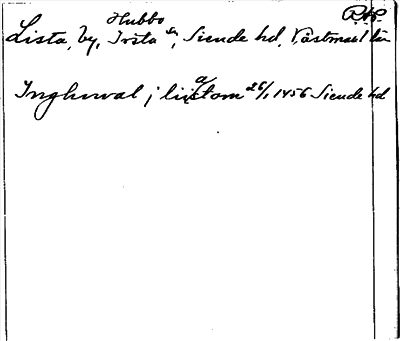 Hubbo P.R.
Lista, by, Irsta sn, Siende hd, Västmanl län
Inghewal j liistom 26/1 1456 Siende hd
a